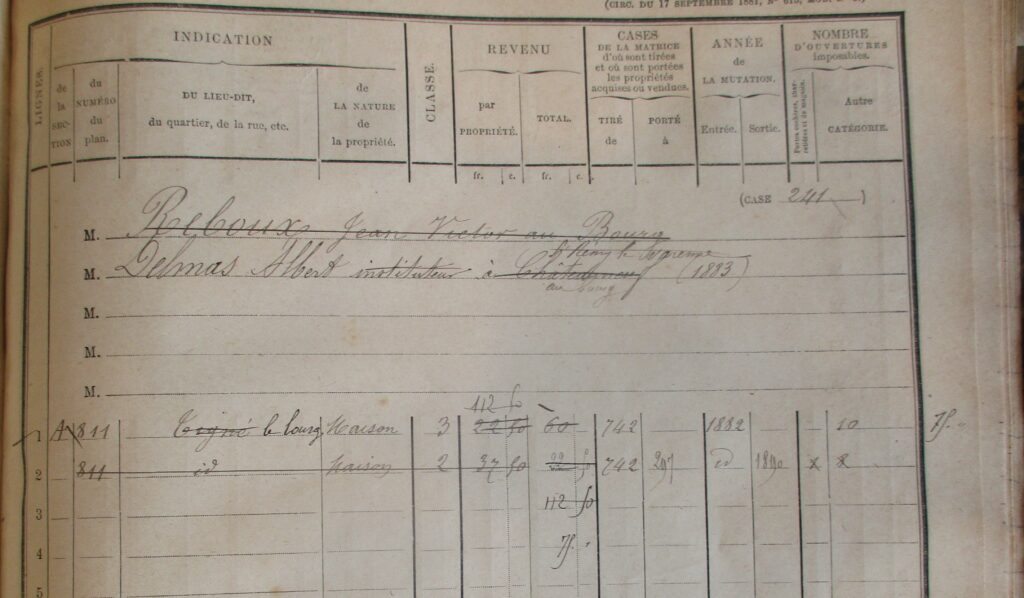 (CIRC. DU 17 SEPTEMBRE 1881, N° 615,
LIGNES.
INDICATION
de la SECTION
du NUMÉRO du plan.
DU LIEU-DIT,
du quartier, de la rue, etc.
de
LA NATURE
de
la propriété.
CLASSE.
REVENU
par
PROPRIÉTÉ.
TOTAL.
fr. c. fr. c.
CASES
DE LA MATRICE
d'où sont tirées
et où sont portées
les propriétés
acquises ou vendues.
TIRÉ
de
PORTÉ
à
ANNÉE
de
LA MUTATION.
Entrée. Sortie.
NOMBRE
D'OUVERTURES
imposables.
Portes cochères, charretières et de magasin.
Autre
CATÉGORIE.
(CASE 241)
M. Reboux Jean Victor au Bourg
St Rémy la Varenne
M. Delmas Albert instituteur à Châteauneuf (1893)
au bourg
M.
M.
M.
112 50
1 A 811 Tigné le bourg Maison 3 22 50 60 742 1882 10 75
2 811 id Maison 2 37 50 742 297 id 1890 x 8
3 112 50
4 75
5